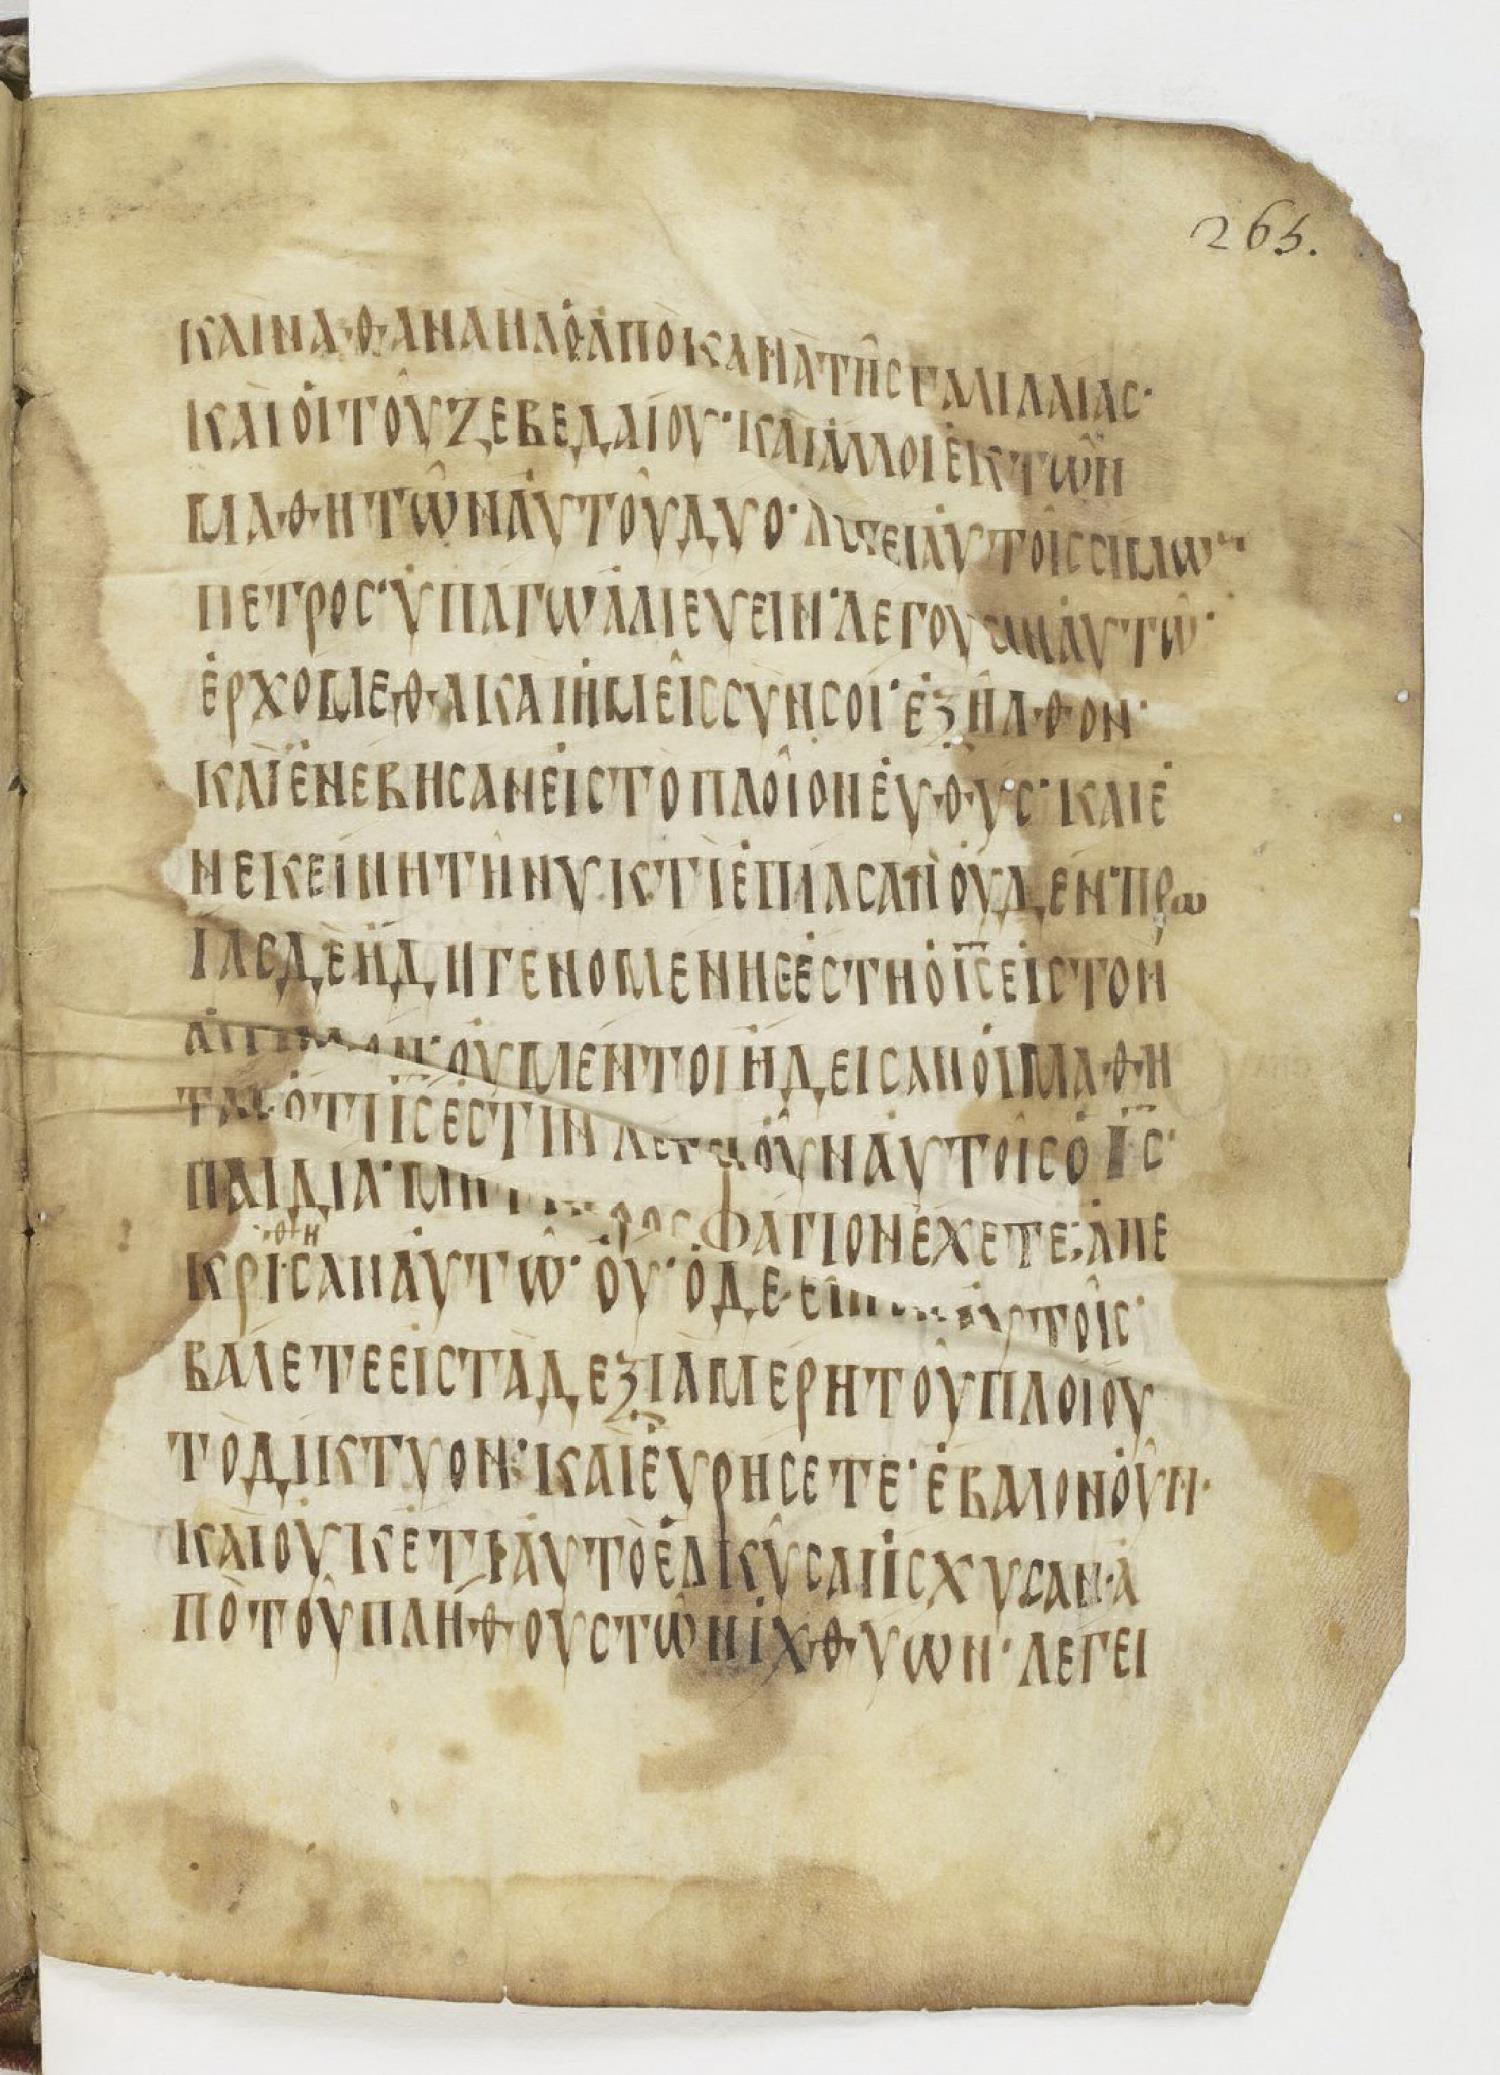 265.
ΚΑΙΝΑΘΑΝΑΗΛ ὉἈΠῸΚΑΝᾶΤῆϹΓΑΛΙΛΑΙΑϹ·
ΚΑῚΟἹΤΟῦΖΕΒΕΔΑΙΟΥ· ΚΑῚἌΛΛΟΙἘΚΤῶΝ
ΜΑΘΗΤῶΝΑὐΤΟῦΔΥΟ· ΛΕΓΕΙΑὐΤΟῖϹϹΙΜΩΝ
ΠΕΤΡΟϹ· ὑΠΑΓΩἁΛΙΕΥΕΙΝ· ΛΕΓΟΥϹΙΝΑὐΤῶ·
ἐΡΧΟΜΕΘΑΚΑΙἡΜΕῖϹϹῪΝϹΟΙ· ἐΞῆΛΘΟΝ·
ΚΑῚἐΝΕΒΗϹΑΝΕἰϹΤῸΠΛΟῖΟΝΕὐΘΥϹ· ΚΑΙἐ
ΝΕΚΕΙΝΗΤῆΝΥΚΤῚἐΠΙΑϹΑΝΟὐΔΕΝ· ΠΡΩ
ΙΑϹΔῈἤΔΗΓΕΝΟΜΕΝΗϹἔϹΤΗὁΙ̅Ϲ̅ΕἰϹΤΟΝ
ΑἰΓΙΑΛΟΝ· ΟὐΜΕΝΤΟΙἤΔΕΙϹΑΝΟἱΜΑΘΗ
ΤΑΙὅΤΙΙ̅Ϲ̅ἐϹΤΙΝ ΛΕΓΕΙΟὖΝΑὐΤΟῖϹὁΙ̅Ϲ̅·
ΠΑΙΔΙΑ· ΜΗΤΙ ΠΡΟϹΦΑΓΙΟΝἔΧΕΤΕ; ἀΠΕ
ΘΗ
ΚΡΙϹΑΝΑὐΤῶ· Οὔ· ὁΔΕΕἶΠΕΝΑὐΤΟῖϹ·
ΒΑΛΕΤΕΕἰϹΤᾺΔΕΞΙΑΜΕΡΗΤΟῦΠΛΟΙΟΥ
ΤΟΔΙΚΤΥΟΝ· ΚΑῚΕὑΡΗϹΕΤΕ· ἔΒΑΛΟΝΟὖΝ·
ΚΑῚΟὐΚἔΤΙΑὐΤῸἑΛΚῦϹΑΙἴϹΧΥϹΑΝ· ἀ
ΠῸΤΟῦΠΛΗΘΟΥϹΤῶΝἰΧΘΥΩΝ· ΛΕΓΕΙ